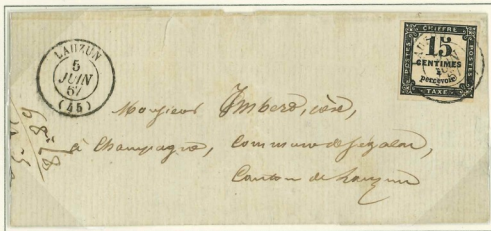 LAUZUN
5
JUIN
67
(45)
CHIFFRE
POSTES
15
CENTIMES
à
percevoir
POSTES
TAXE
Monsieur Imbert,
à Champagne, Commune de Ségalas,
Canton de Lauzun